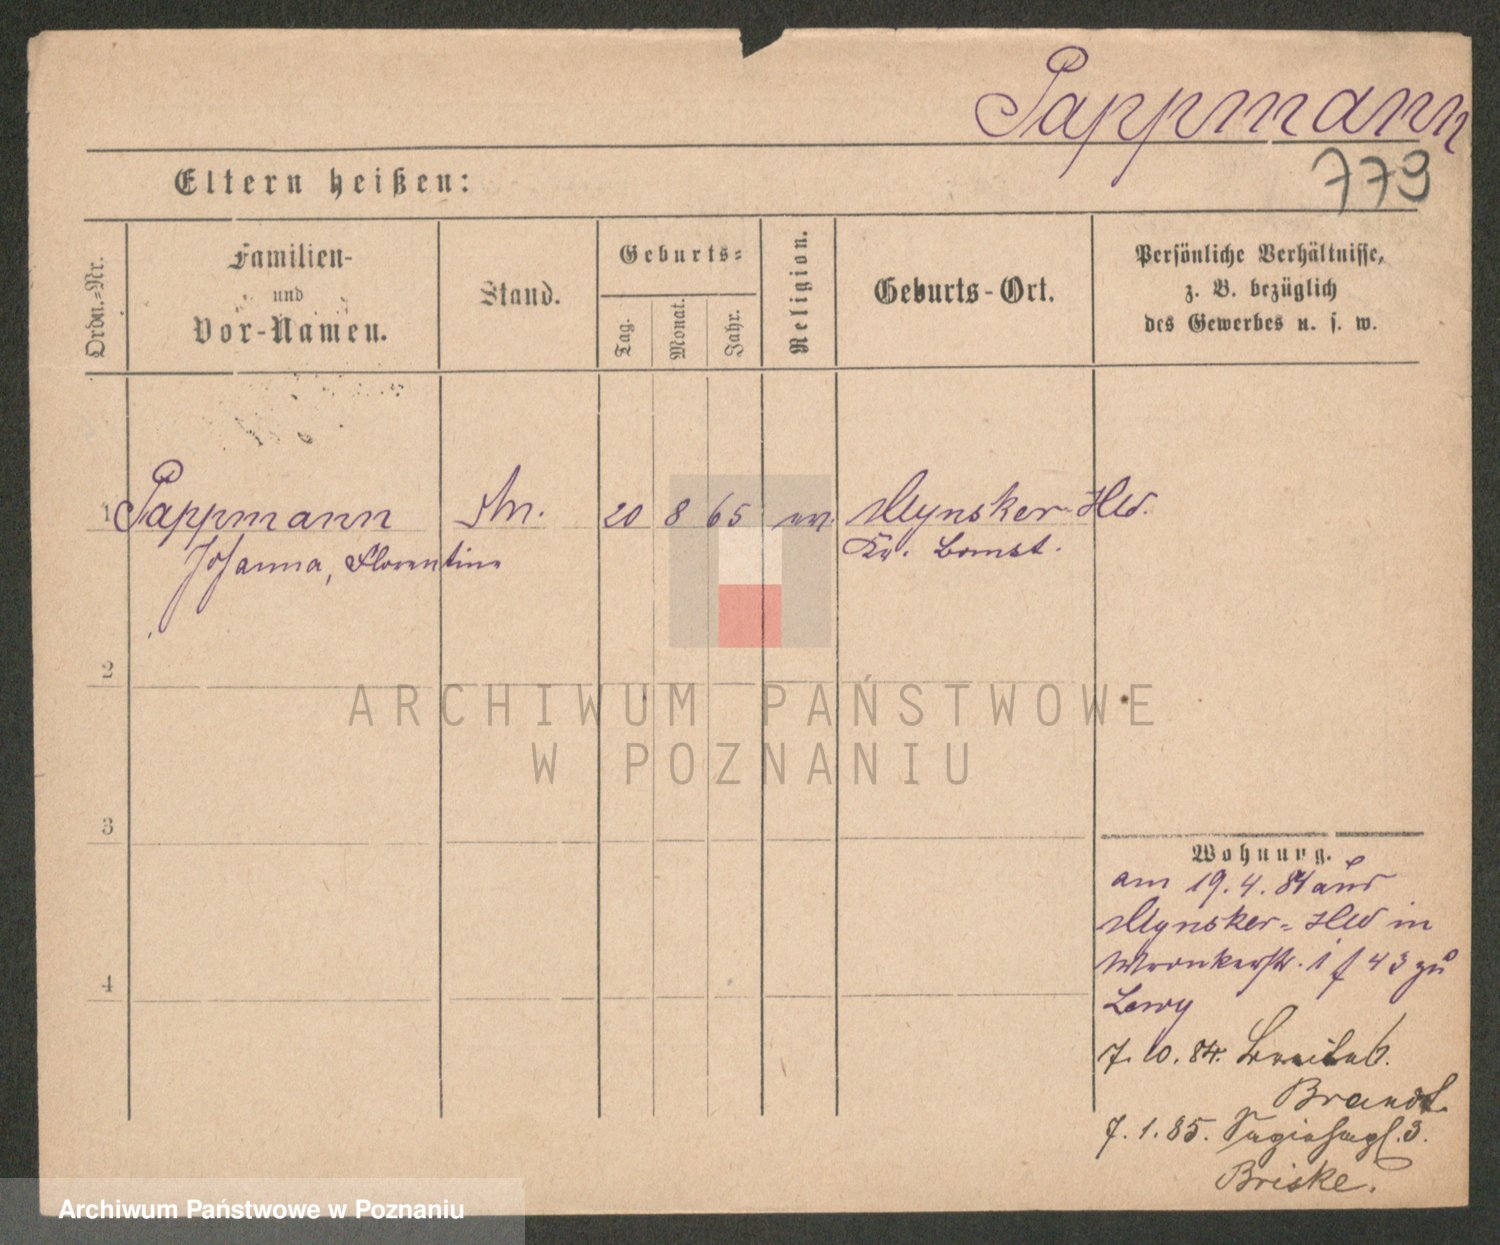 Pappmann
779
Eltern heißen:
Ordn.-Nr.
Familien-
und
Vor-Namen.
Stand.
Geburts-
Tag.
Monat.
Jahr.
Religion.
Geburts-Ort.
Persönliche Verhältnisse,
z. B. bezüglich
des Gewerbes u. s. w.
1 Pappmann 20 8 65 Mynsker Hld.
Johanna, Florentine Kr. Bomst.
2
ARCHIWUM PAŃSTWOWE
W POZNANIU
3
Wohnung.
am 19.4.84 aus
Mynsker-Hld in
Wronkerstr. 43 zu
4
Levy
7.10.84. Breitest.
Brandt.
7.1.85. 3.
Briske.
Archiwum Państwowe w Poznaniu